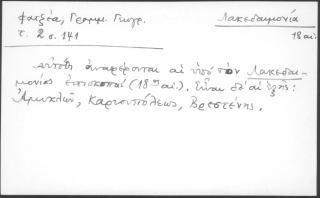 φατζέα, Γραμμ. Γεωγρ. Λακεδαιμονία
τ. 2 σ. 141 18 αι.
Αὐτόθι ἀναφέρονται αἱ ὑπὸ τὸν Λακεδαι-
μονίας ἐπισκοπαί (18ου αἰ.). Εἶναι δὲ αἱ ἑξῆς:
Ἀμυκλῶν, Καριουπόλεως, Βρεστένης.